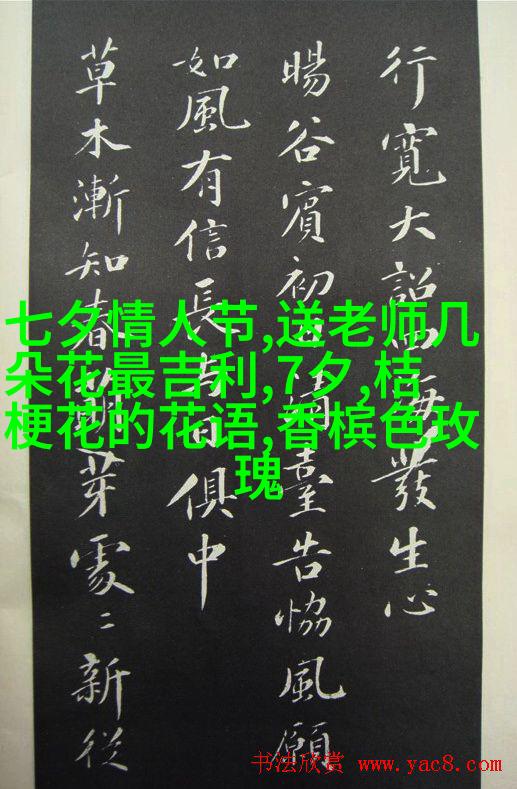 七夕情人节,送老师几
朵花最吉利,7夕,桔
梗花的花语,香槟色玫
瑰
行寬大詔四海發生心
暘谷賓初日清臺告協風願
如風有信長與日俱中
草木漸知春萌芽處〻新從
书法欣赏 www.yac8.com